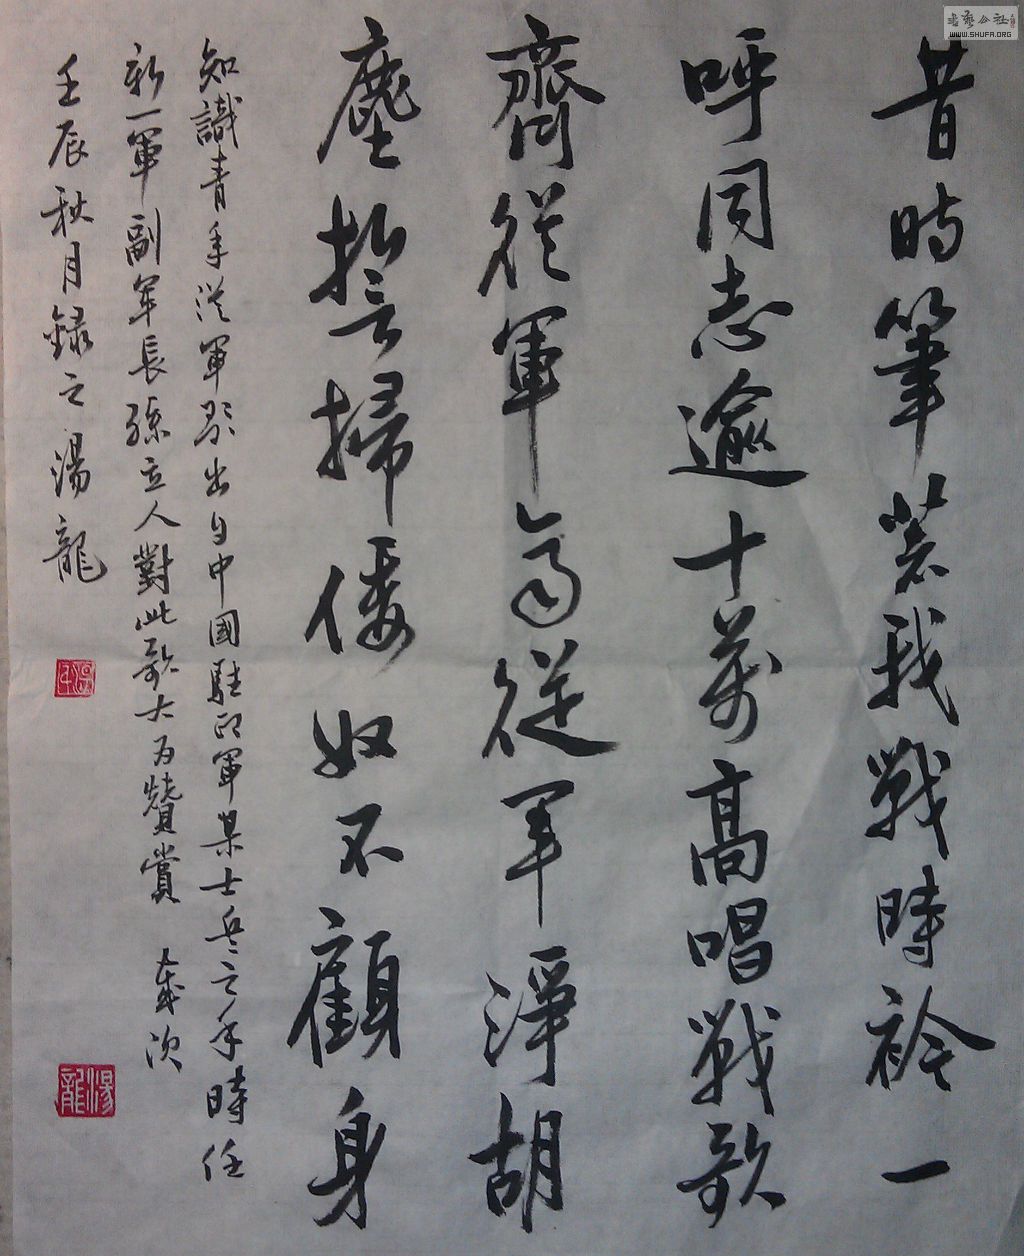 昔時筆著我戰時衿一
呼同志逾十萬高唱戰歌
齊從軍齊從軍淨胡
塵誓掃倭奴不顧身
知識青年從軍歌出自中國駐印軍某士兵之手時任
新一軍副軍長孫立人對此歌大为贊賞 歲次
壬辰秋月錄之湯龍
湯龍
書藝公社
WWW.SHUFA.ORG